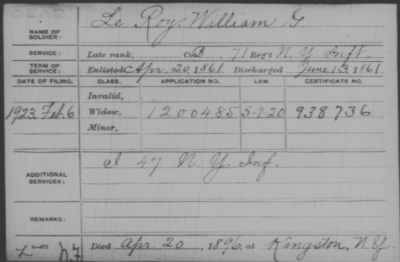 DEAD
NAME OF SOLDIER: Le Roy, William G.
SERVICE: Late rank, Co. B, 71 Reg't N. Y. Inft.
TERM OF SERVICE: Enlisted Apr. 20, 1861 Discharged June 13, 1861
DATE OF FILING. CLASS. APPLICATION NO. LAW. CERTIFICATE NO.
Invalid,
1923 Feb. 6 Widow, 1200485 5-9-20 938736
Minor,
ADDITIONAL SERVICES: I 47 N. Y. Inf.
REMARKS:
Died Apr. 20, 1896, at Kingston, N. Y.